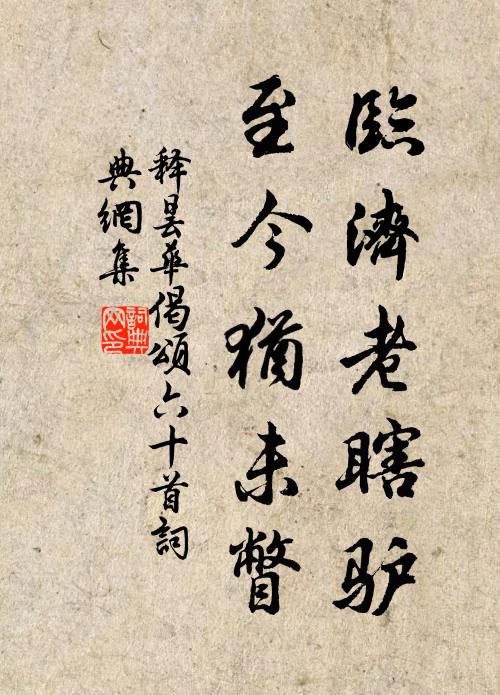 臨濟老瞎驴
至今猶未瞥
释曇華偈頌六十首詞
典網集
詞典网印